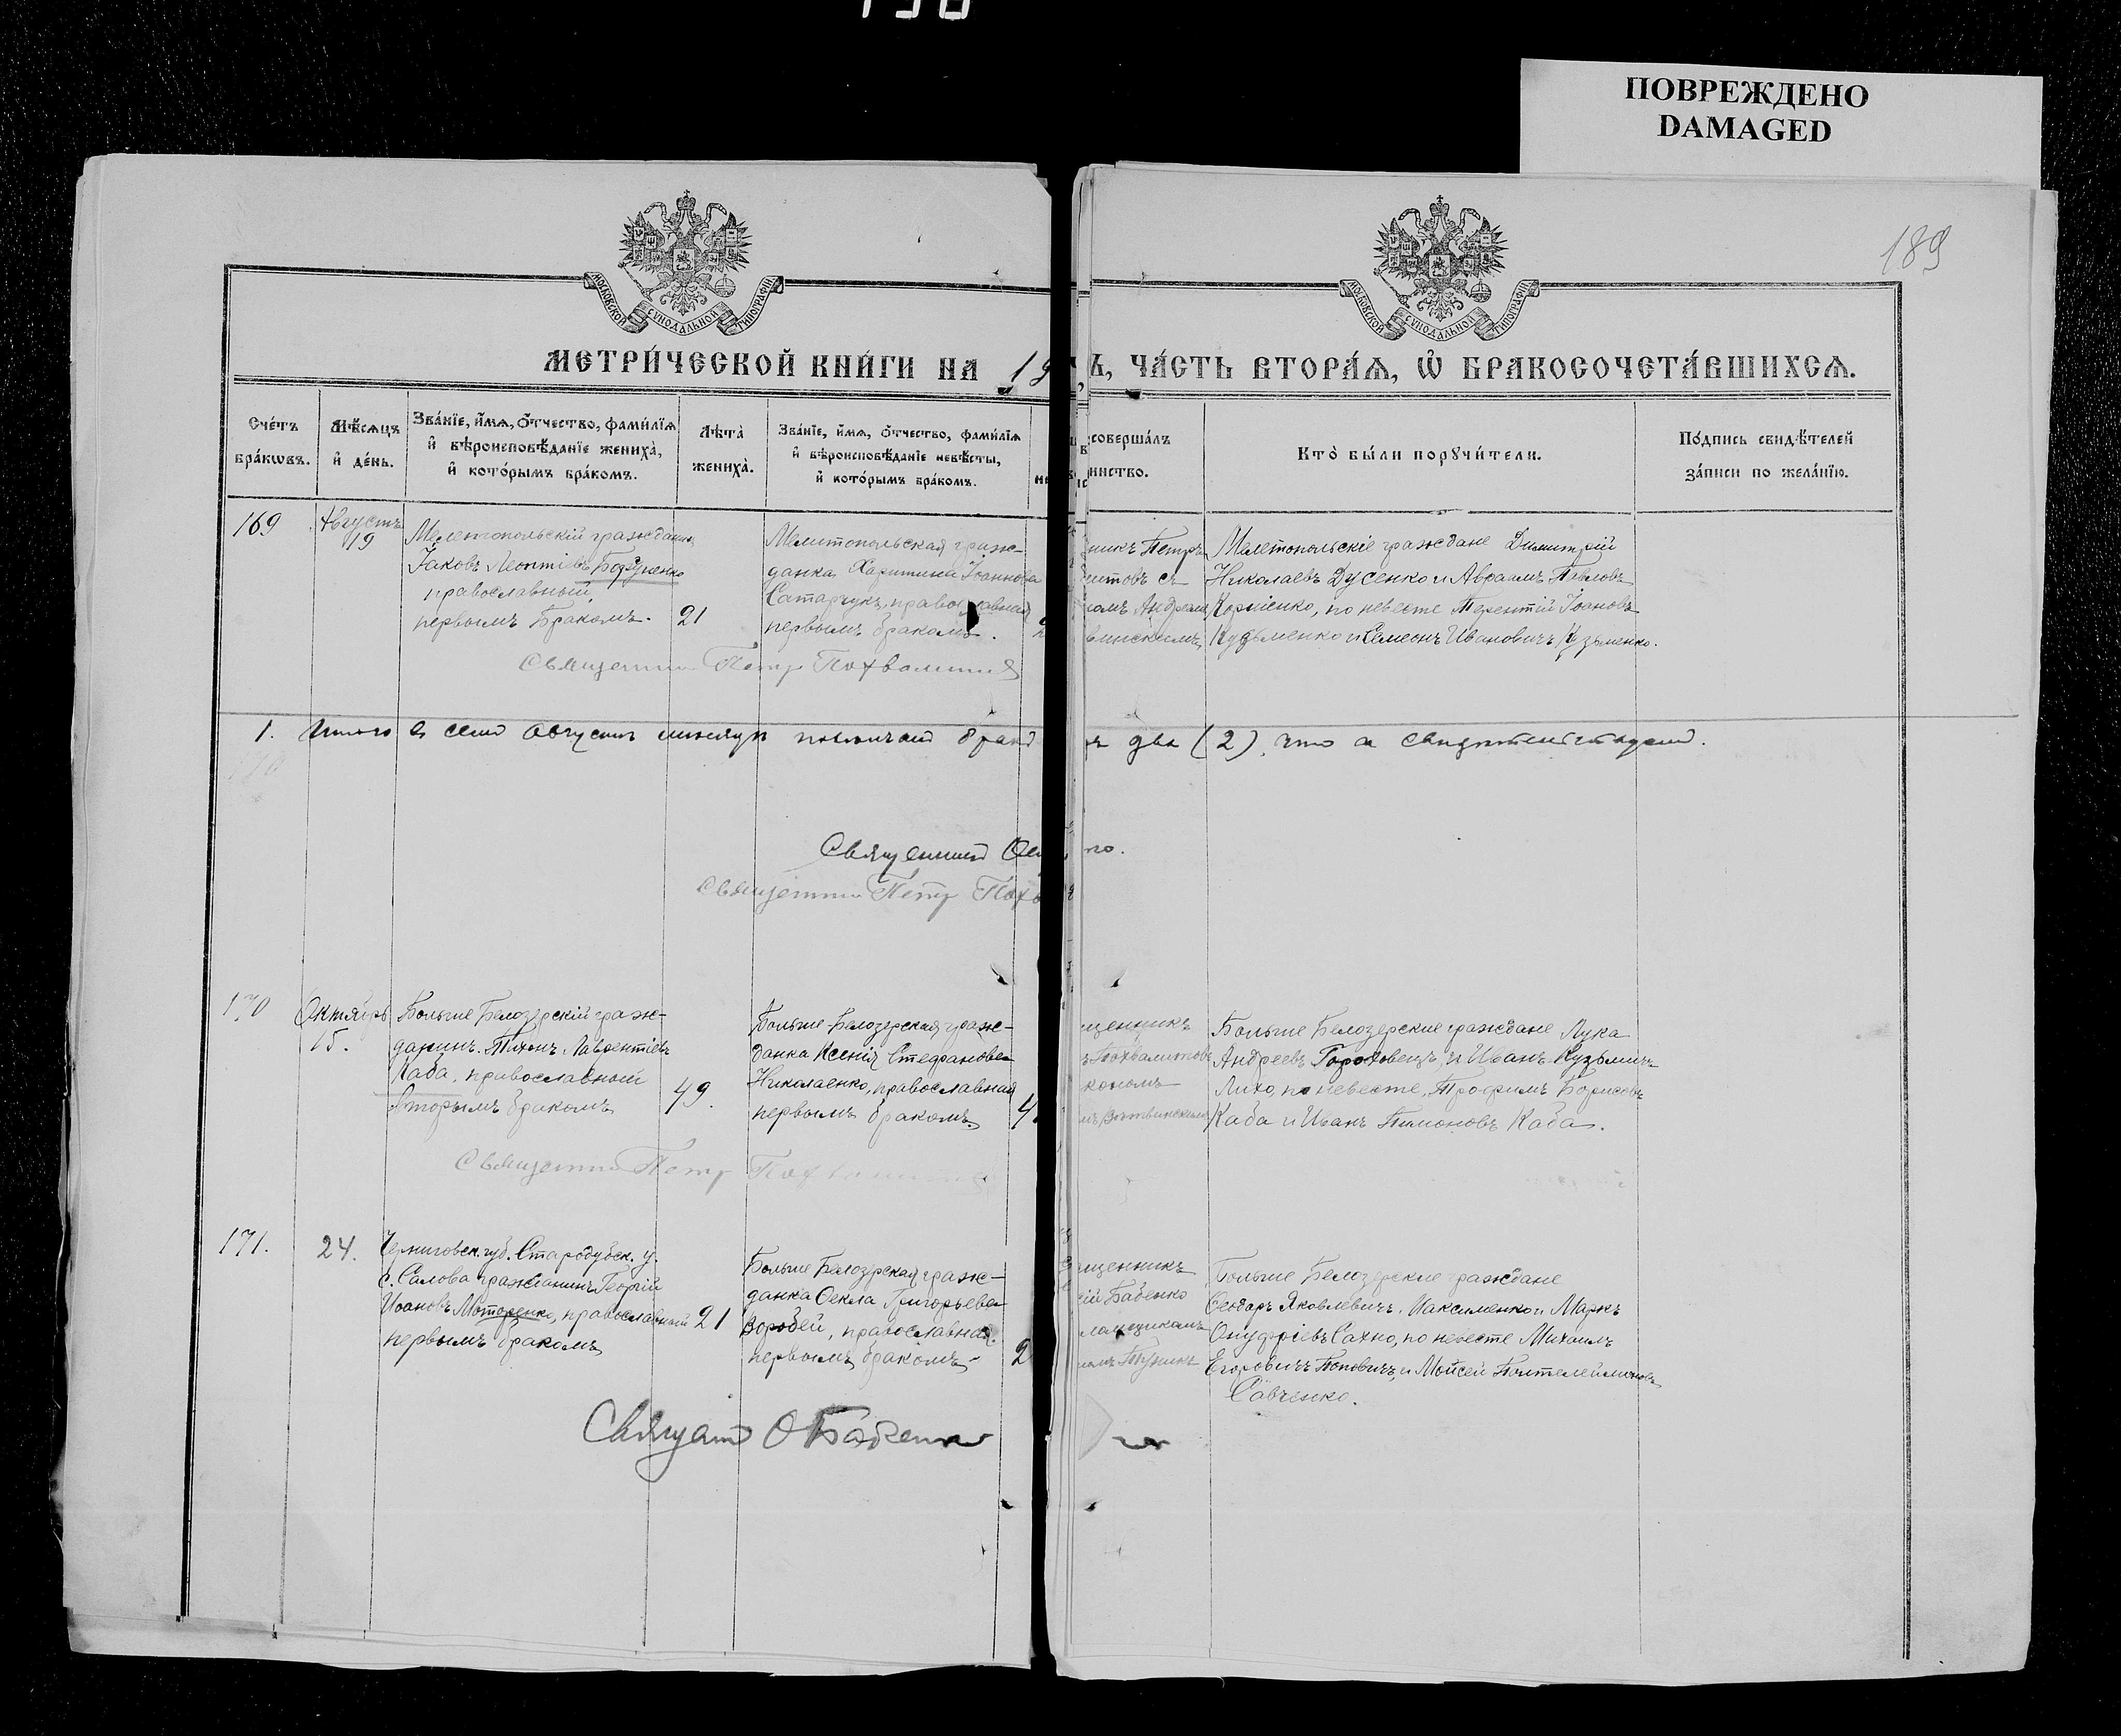 ПОВРЕЖДЕНО
DAMAGED
189
МОСКОВСКОЙ СѴНОДАЛЬНОЙ ТИПОГРАФІИ
МОСКОВСКОЙ СѴНОДАЛЬНОЙ ТИПОГРАФІИ
МЕТРИ́ЧЕСКОЙ КНИ́ГИ НА 19
Ъ, ЧА́СТЬ ВТОРА́Ѧ, Ѽ БРАКОСОЧЕТА́ВШИХСѦ.
Сче́тъ бра́кѡвъ.
Мѣ́сѧцъ и҆ де́нь.
Зва́нїе, и҆́мѧ, ѻ҆́тчество, фами́лїѧ и҆ вѣроисповѣ́данїе жениха̀, и҆ кото́рымъ бра́комъ.
Лѣта̀ жениха̀.
Зва́нїе, и҆́мѧ, ѻ҆́тчество, фами́лїѧ и҆ вѣроисповѣ́данїе невѣ́сты, и҆ кото́рымъ бра́комъ.
соверша́лъ
инство.
Кто̀ бы́ли порꙋчи́тели.
По́дпись свидѣ́телей за́писи по жела́нїю.
169
Августъ
19
Мелетопольскій гражданинъ
Іаковъ Леонтіевъ
православный,
первымъ бракомъ.
21
Мелитопольская граж-
данка Харитина Іоаннова
православная
первымъ бракомъ.
никъ Петръ
съ
Андреемъ
Мелетопольскіе граждане Димитрій
Николаевъ Дусенко и Авраамъ Павловъ
Корніенко, по невесте Терентій Іоановъ
Кузьменко и Симеонъ Ивановичъ Кузьменко.
Священник Петр Похвалитов
1. Итого в сем Август месяце
два (2), что и свидетельствуем.
Священник
Священник Петр
170
Октябрь
15.
Больше Белозерскій граж-
данинъ Тихонъ Лаврентіевъ
Каба, православный
вторымъ бракомъ
49.
Больше-Белозерская граж-
данка Ксенія Стефановна
Николаенко, православная
первымъ бракомъ.
4
щенникъ
Похвалитовъ
Больше Белозерские граждане Лука
Андреевъ Гороховецъ, и Иванъ Кузьмичъ
Лихо, по невесте, Трофимъ Борисовъ
Каба и Иванъ Пимоновъ Каба.
Священник Петр Похвалитов
171.
24.
Черниговск. губ. Стародубск. у.
с. Салова гражданинъ Георгій
Иоановъ Моторенко, православный
первымъ бракомъ
21
Больше Белозерская граж-
данка Фекла Григорьевна
Воробей, православная.
первымъ бракомъ
2
щенникъ
Бабенко
Больше Белозерские граждане
Феодоръ Яковлевичъ Максименко и Маркъ
Онуфріевъ Сахно, по невесте Михаилъ
Егоровичъ Поповичъ, и Мойсей Пантелеймоновъ
Савченко.
Священ О Бабенко